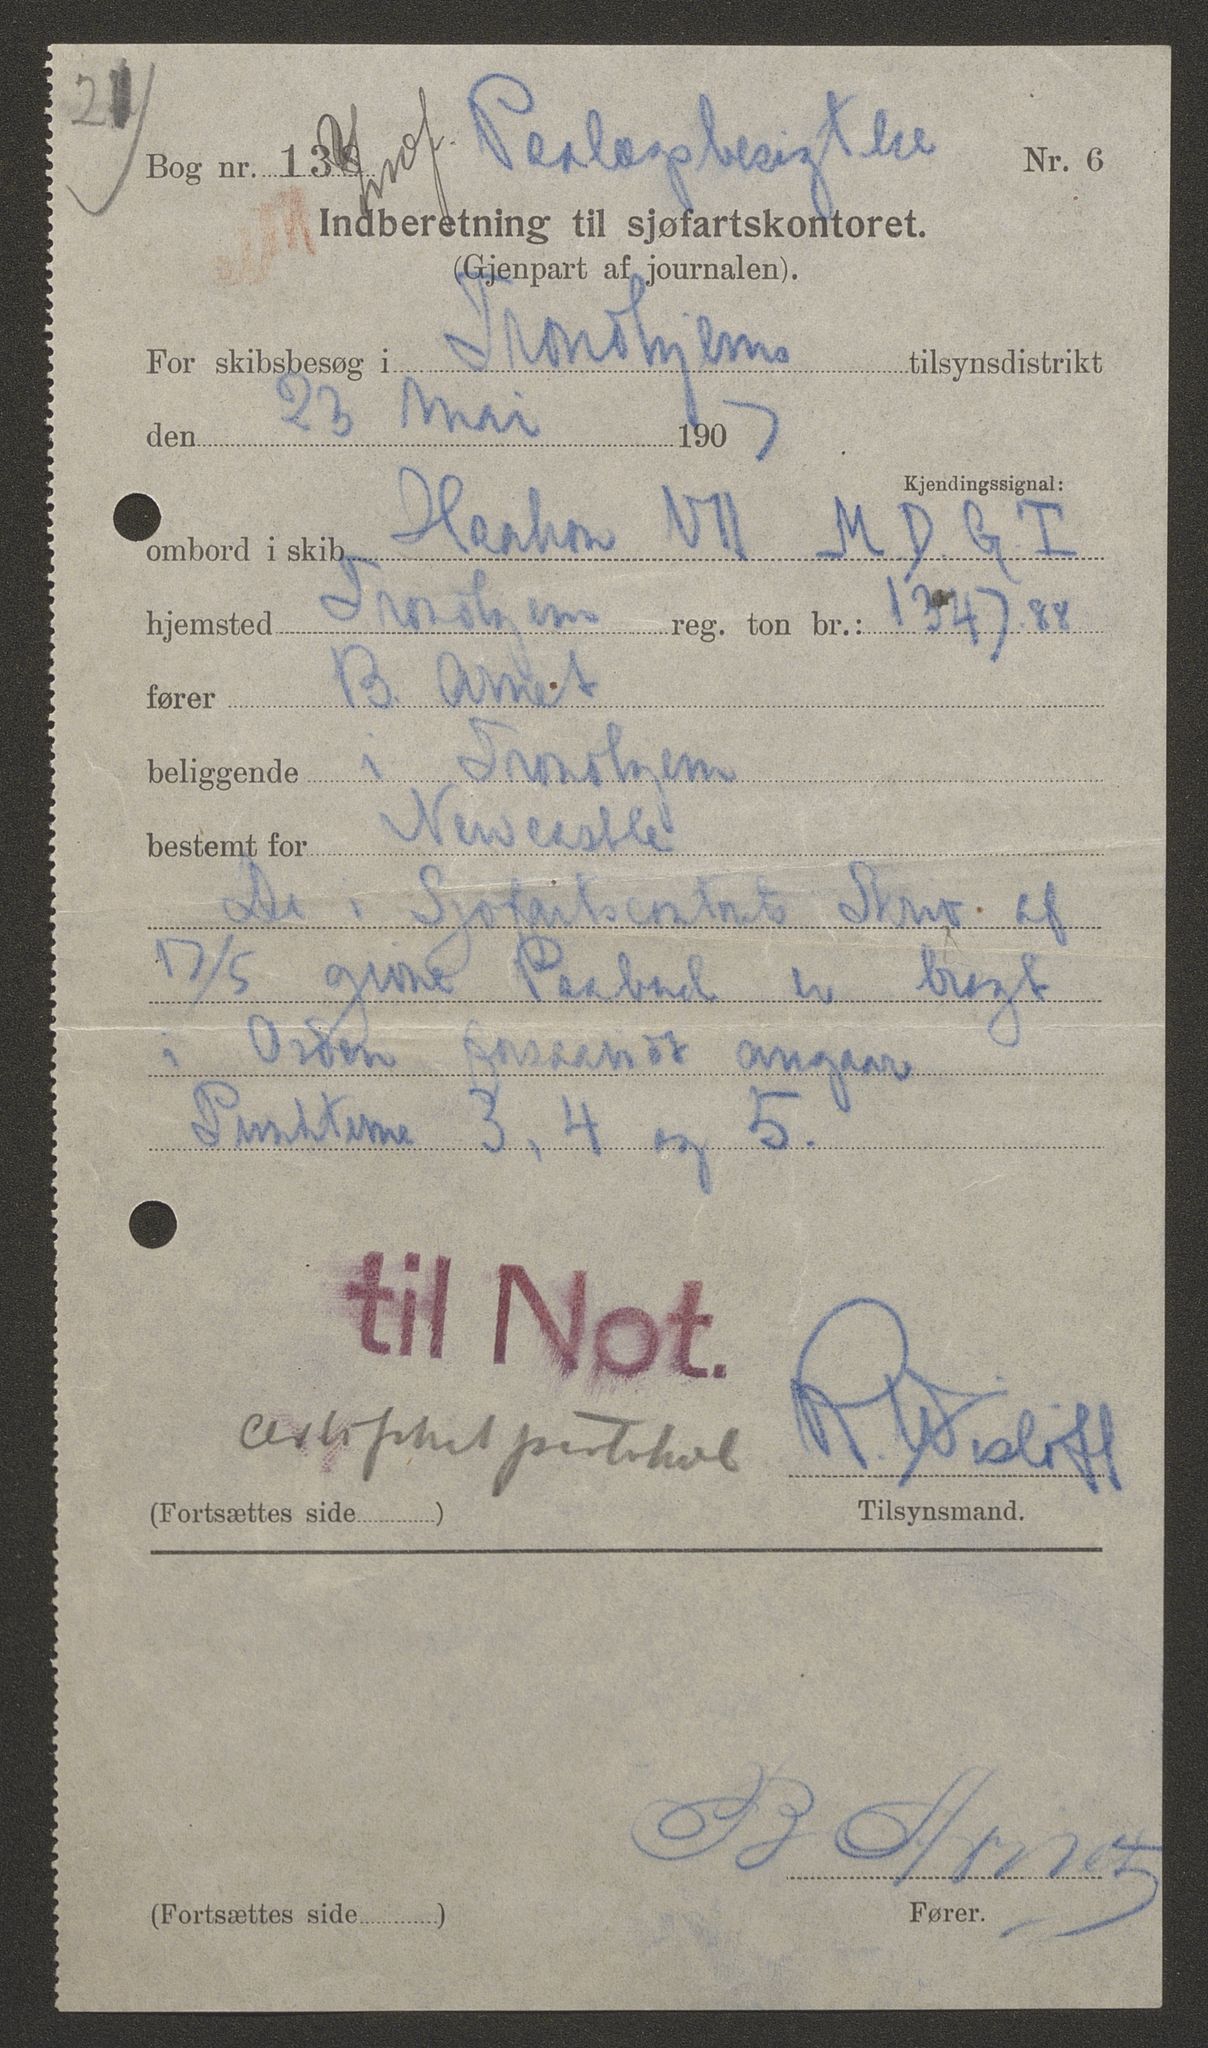 21
Bog nr. 138 Paalægsbesigtelse Nr. 6
Indberetning til sjøfartskontoret.
(Gjenpart af journalen).
For skibsbesøg i Trondhjems tilsynsdistrikt
den 23 Mai 1907
Kjendingssignal:
ombord i skib Haakon VII M.D.G.T
hjemsted Trondhjem reg. ton br.: 1347.88
fører B. Arnet
beliggende i Trondhjem
bestemt for Newcastle
De i Sjøfartscontorets Skriv. af
17/5 givne Paabud er bragt
i Orden forsaavidt angaar
Punkterne 3, 4 og 5.
til Not.
protokol R. Wisløff
(Fortsættes side ) Tilsynsmand.
B Arnet
(Fortsættes side ) Fører.